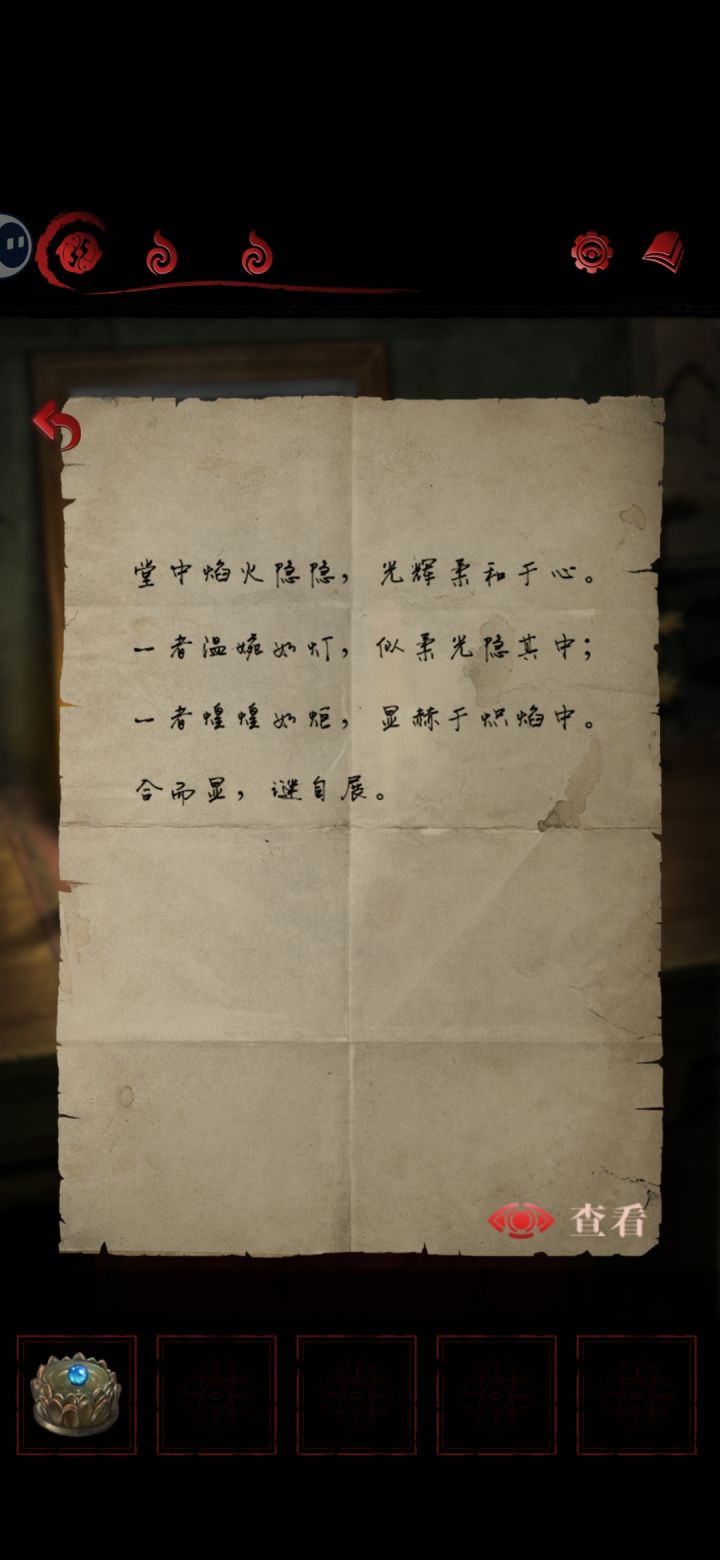 堂中焰火隐隐，光辉柔和于心。
一者温婉如灯，似柔光隐其中；
一者煌煌如炬，显赫于炽焰中。
合而显，谜自展。
查看